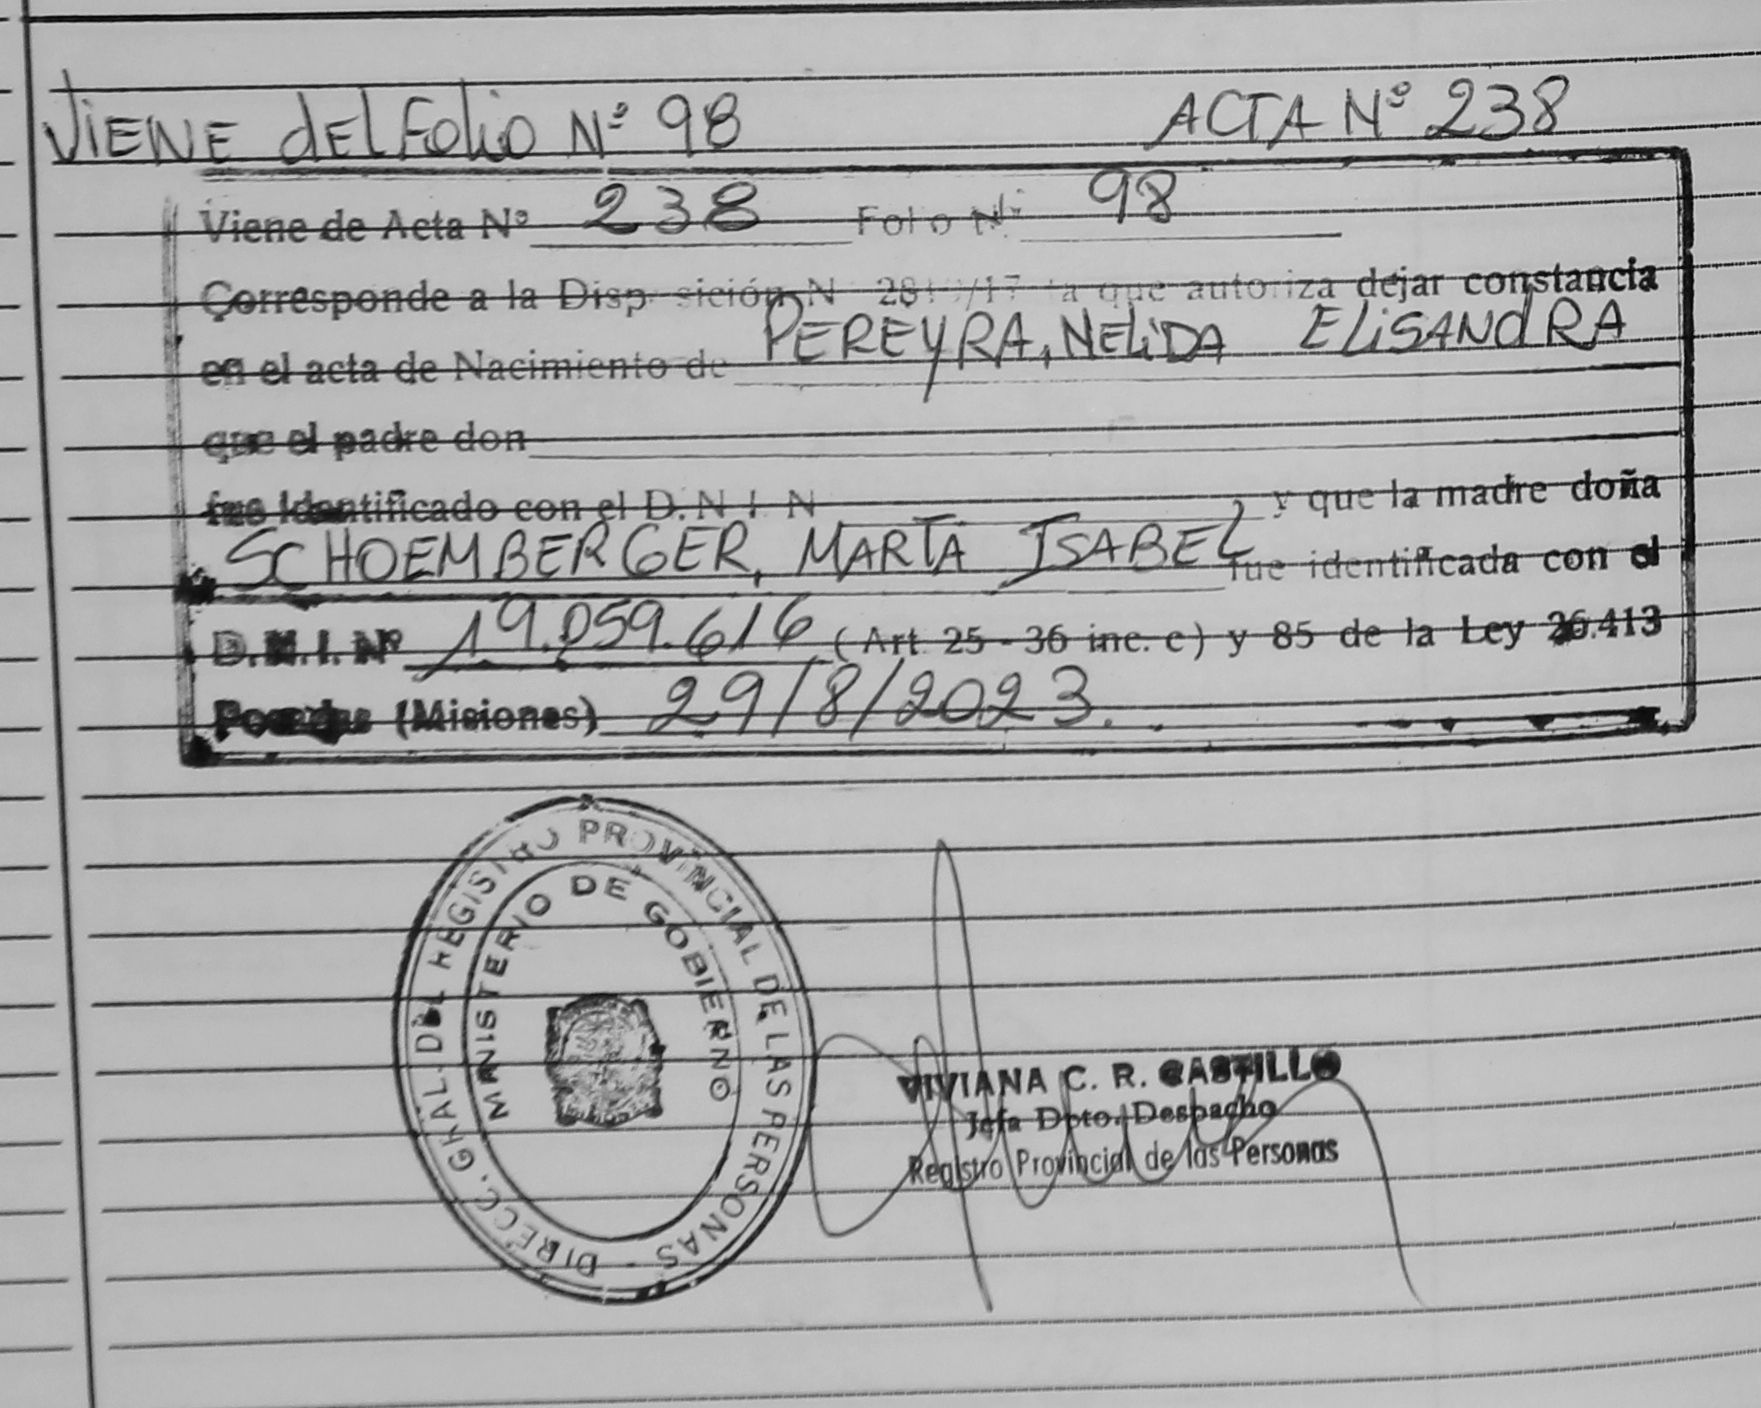 VIENE dEL Folio Nº 98
ACTA Nº 238
Viene de Acta Nº 238 Folio Nº 98
Corresponde a la Disposición N la que autoriza dejar constancia
en el acta de Nacimiento de PEREYRA, NELIDA ELISANDRA
que el padre don
fue Identificado con el D.N.I. N y que la madre doña
SCHOEMBERGER, MARTA ISABEL fue identificada con el
D.N.I. Nº 19.059.616 (Art. 25 - 36 inc. c) y 85 de la Ley 26.413
Posadas (Misiones) 29/8/2023.
DIRECC. GRAL. DEL REGISTRO PROVINCIAL DE LAS PERSONAS -
MINISTERIO DE GOBIERNO
VIVIANA C. R. CASTILLO
Jefa Dpto. Despacho
Registro Provincial de las Personas